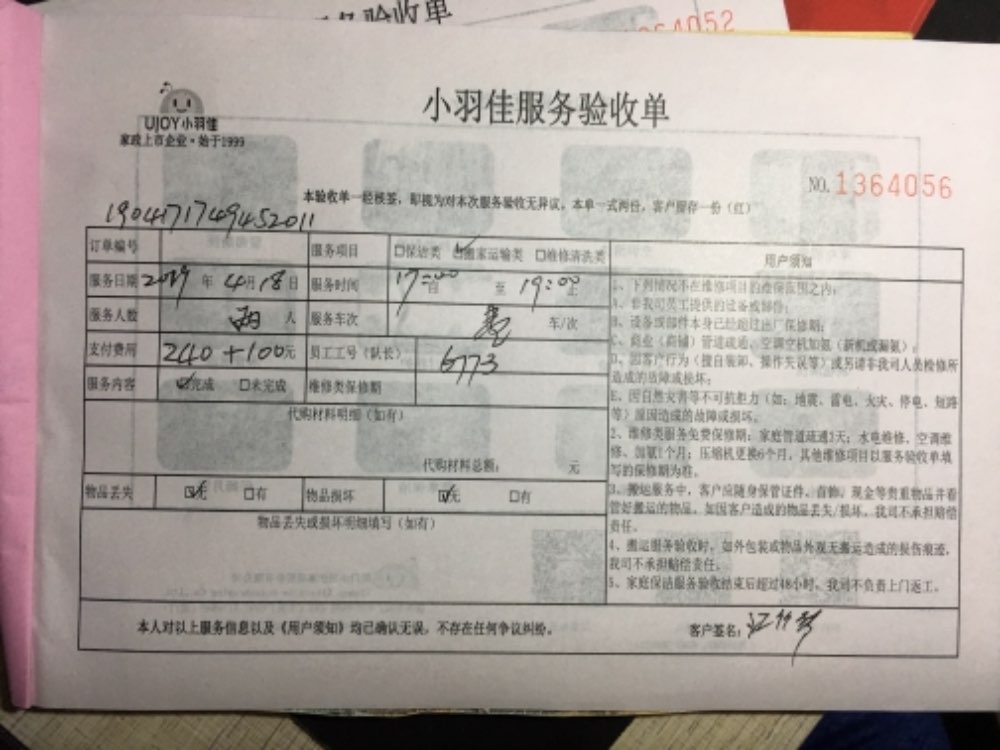 验收单
小羽佳服务验收单
UJOY小羽佳
家政上市企业·始于1999
NO.1364056
本验收单一经核签，即视为对本次服务验收无异议，本单一式两份，客户留存一份（红）
1904171749452011
订单编号 服务项目 □保洁类 ☑搬家运输类 □维修清洗类 用户须知
服务日期 2019 年 4月18日 服务时间 17:00 自 至 19:00 止
服务人数 两 人 服务车次 车/次
支付费用 240+100元 员工工号（队长） 6773
服务内容 ☑完成 □未完成 维修类保修期
代购材料明细（如有）
代购材料总额： 元
物品丢失 ☑无 □有 物品损坏 ☑无 □有
物品丢失或损坏明细填写（如有）
1、下列情况不在维修项目的维保范围之内：
A、非我司员工提供的设备或部件；
B、设备或部件本身已经超过出厂保修期；
C、商业（商铺）管道疏通、空调空机加氨（新机或漏氨）；
D、因客户行为（擅自装卸、操作失误等）或另请非我司人员检修所
造成的故障或损坏；
E、因自然灾害等不可抗拒力（如：地震、雷电、火灾、停电、短路
等）原因造成的故障或损坏。
2、维修类服务免费保修期：家庭管道疏通3天；水电维修、空调维
修、加氨1个月；压缩机更换6个月，其他维修项目以服务验收单填
写的保修期为准。
3、搬运服务中，客户应随身保管证件、首饰、现金等贵重物品并看
管好搬运的物品。如因客户造成的物品丢失/损坏，我司不承担赔偿
责任。
4、搬运服务验收时，如外包装或物品外观无搬运造成的损伤痕迹，
我司不承担赔偿责任。
5、家庭保洁服务验收结束后超过48小时，我司不负责上门返工。
本人对以上服务信息以及《用户须知》均已确认无误，不存在任何争议纠纷。 客户签名：